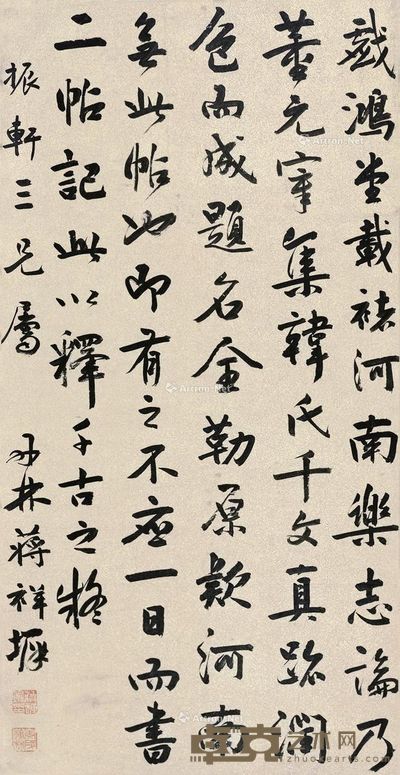 戲鴻堂載褚河南樂志論乃
董元宰集韓氏千文真跡潤
色而成題名全勒原款河南
無此帖也即有之不應一日而書
二帖記此以釋千古之疑
振軒三兄屬
丹林蔣祥墀
Artron.Net
卓克艺术网